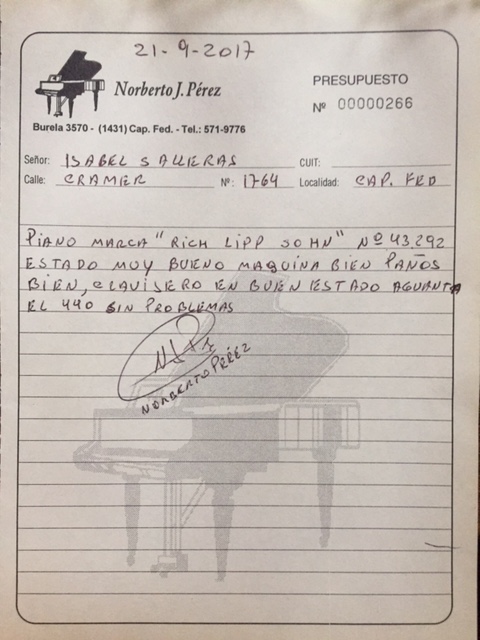 21-9-2017
Norberto J. Pérez
PRESUPUESTO
Nº 00000266
Burela 3570 - (1431) Cap. Fed. - Tel.: 571-9776
Señor: ISABEL SALLERAS CUIT:
Calle: CRAMER Nº: 1764 Localidad: CAP. FED
PIANO MARCA "RICH LIPP SOHN" Nº 43.292
ESTADO MUY BUENO MAQUINA BIEN PAÑOS
BIEN, CLAVIJERO EN BUEN ESTADO AGUANTA
EL 440 SIN PROBLEMAS
NORBERTO PÉREZ